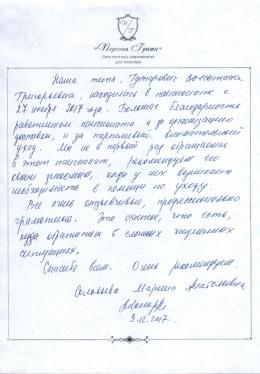 «Персона Грата»
Сеть частных пансионатов
для пожилых
Наша тетя, Валентина
Григорьевна, находилась в пансионате с
27 ноября 2017 года. Большая благодарность
работникам пансионата и за организацию
доставки, и за терпеливый, внимательный
уход. Мы не в первый раз обращаемся
в этот пансионат, рекомендуем его
своим знакомым, когда у них возникает
необходимость в помощи по уходу.
Все очень отзывчивые, профессионально
грамотные. Это счастье, что есть,
куда обратиться в сложных жизненных
ситуациях.
Спасибо Вам. Очень рекомендуем.
Соловьева Марина Анатольевна
9.12.2017.